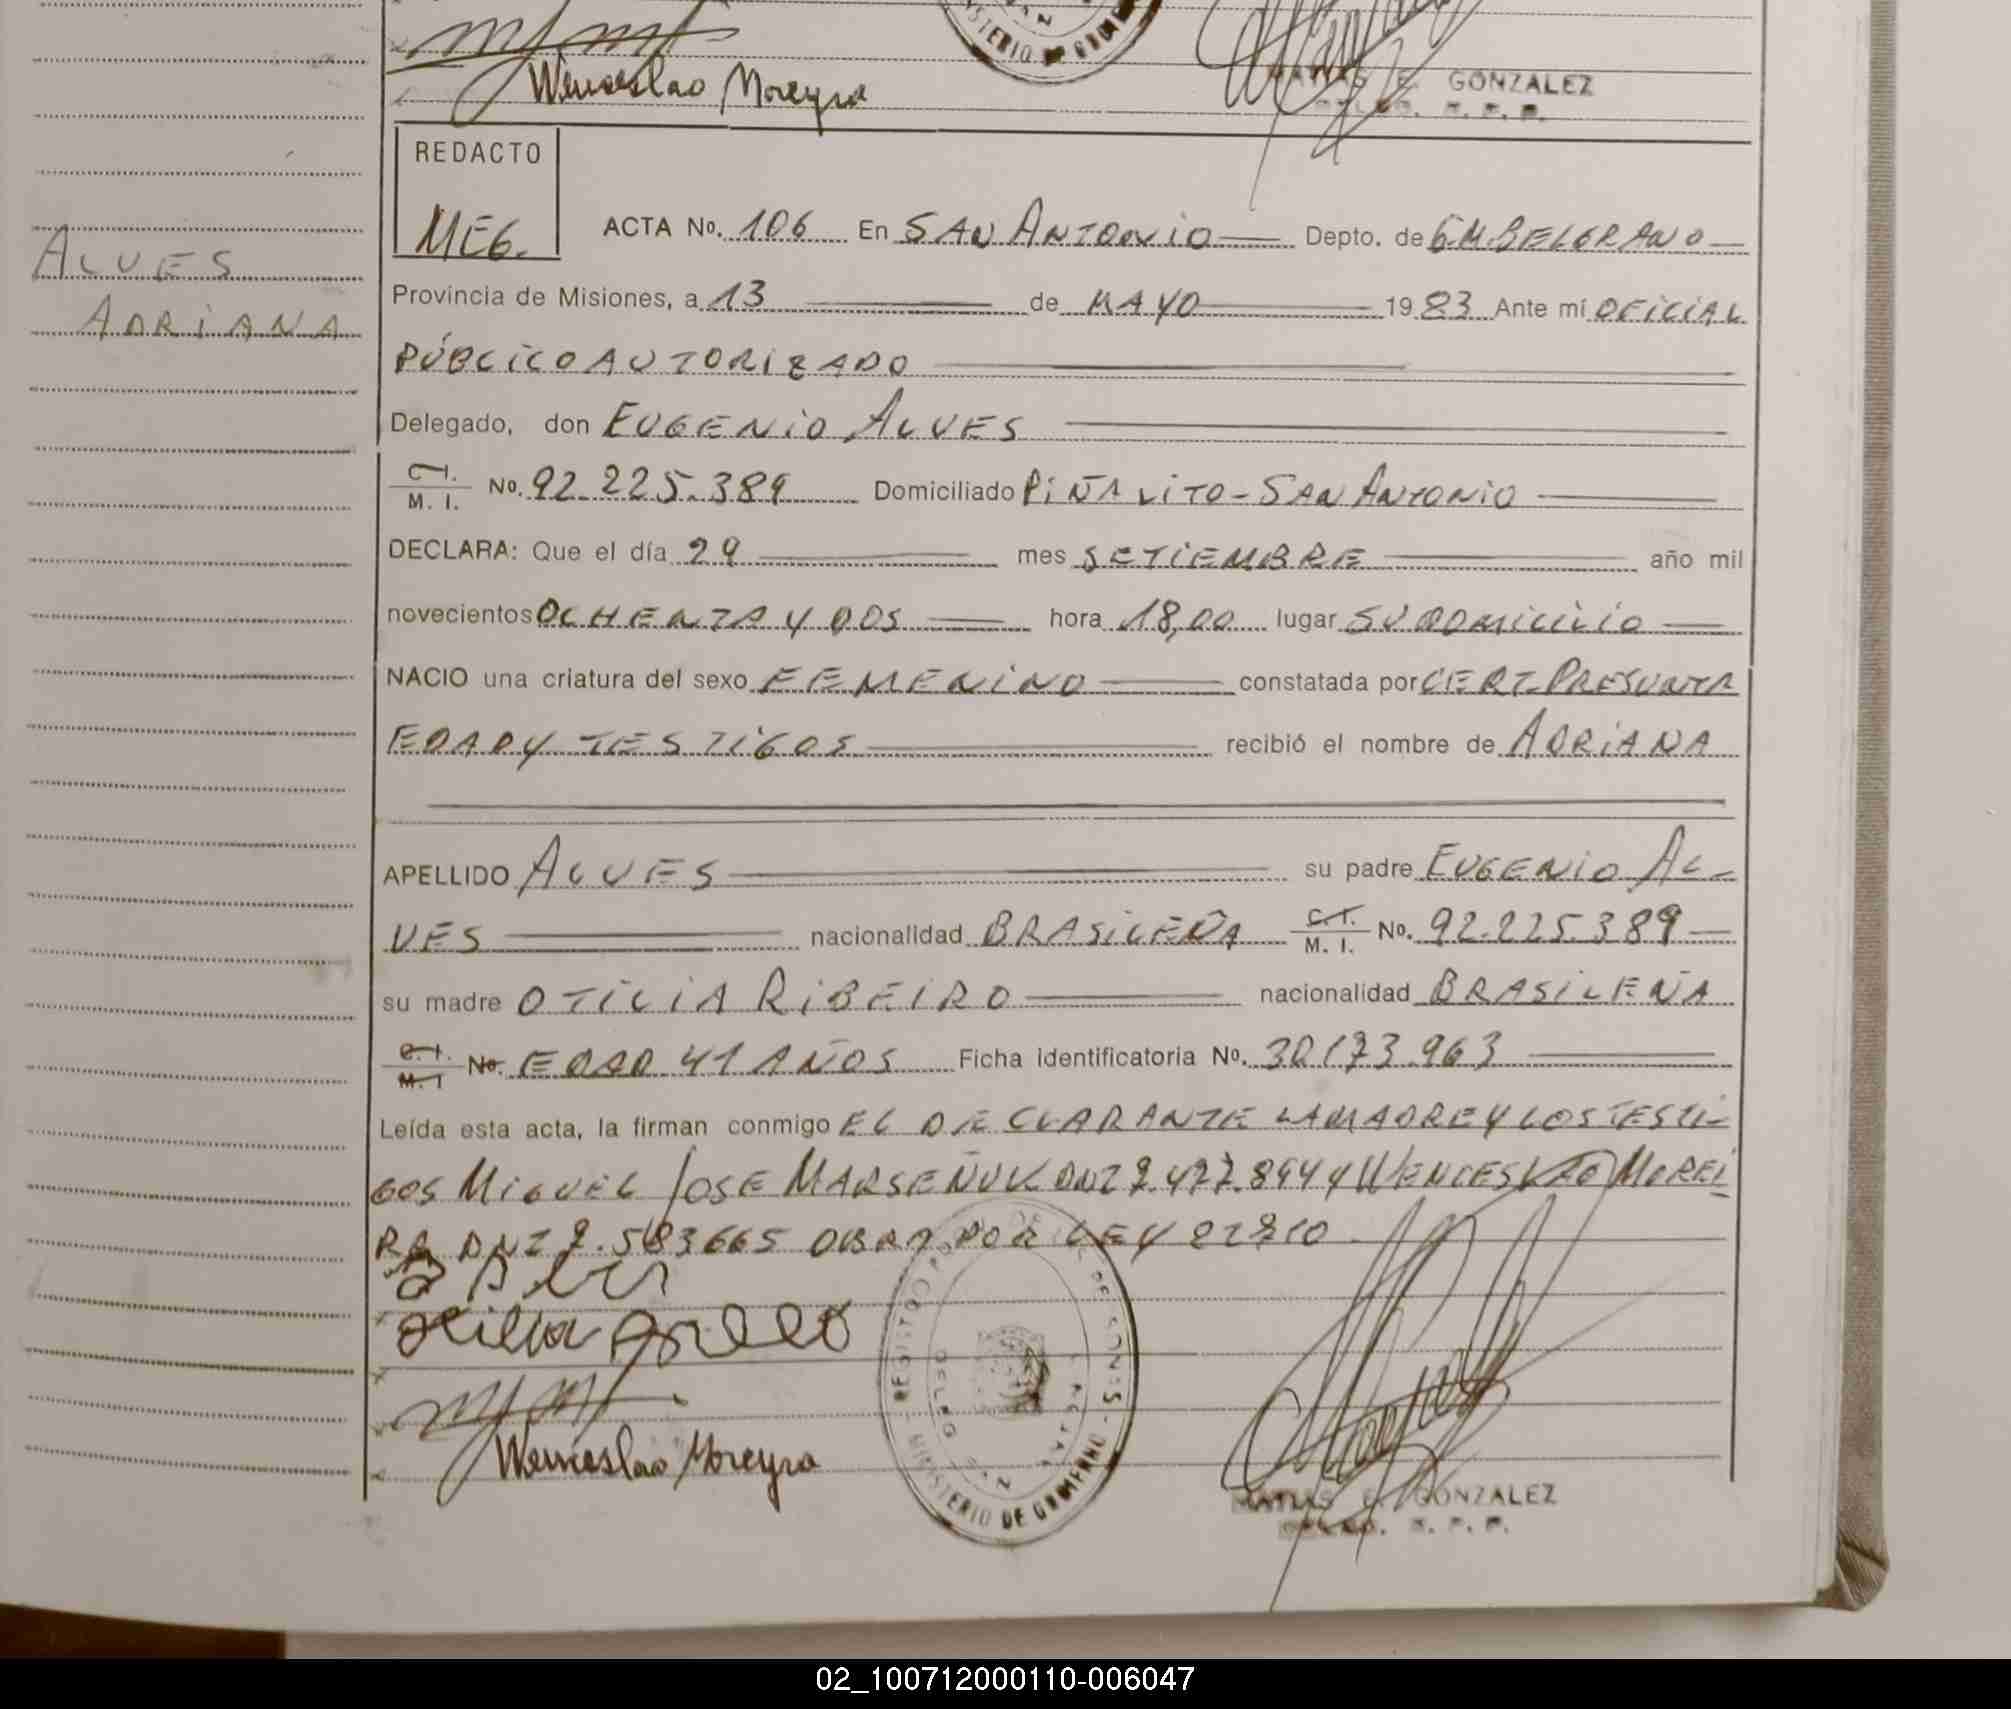 Wenceslao Moreyra
MATIAS E. GONZALEZ
REDACTO
MEG.
ACTA No. 106 En SAN ANTONIO Depto. de GM BELGRANO
ALVES
ADRIANA
Provincia de Misiones, a 13 de MAYO 1983 Ante mí OFICIAL
PÚBLICO AUTORIZADO
Delegado, don EUGENIO ALVES
C.I. M. I. No. 92.225.389 Domiciliado PIÑALITO - SAN ANTONIO
DECLARA: Que el día 29 mes SETIEMBRE año mil
novecientos OCHENTA Y DOS hora 18,00 lugar SU DOMICILIO
NACIO una criatura del sexo FEMENINO constatada por CERT. PRESUNTA
EDAD Y TESTIGOS recibió el nombre de ADRIANA
APELLIDO ALVES su padre EUGENIO AL-
VES nacionalidad BRASILEÑA C.I. M. I. No. 92.225.389
su madre OTILIA RIBEIRO nacionalidad BRASILEÑA
C.I. M. I No. EDAD 41 AÑOS Ficha identificatoria No. 30.173.963
Leída esta acta, la firman conmigo EL DECLARANTE LA MADRE Y LOS TESTI-
GOS MIGUEL JOSE MARSEÑUK DNI 7.477.894 Y WENCESLAO MOREI
RA DNI 7.583665 OBRA POR LEY 22810
Wenceslao Moreyra
MINISTERIO DE GOBIERNO
MATIAS E. GONZALEZ
02_100712000110-006047